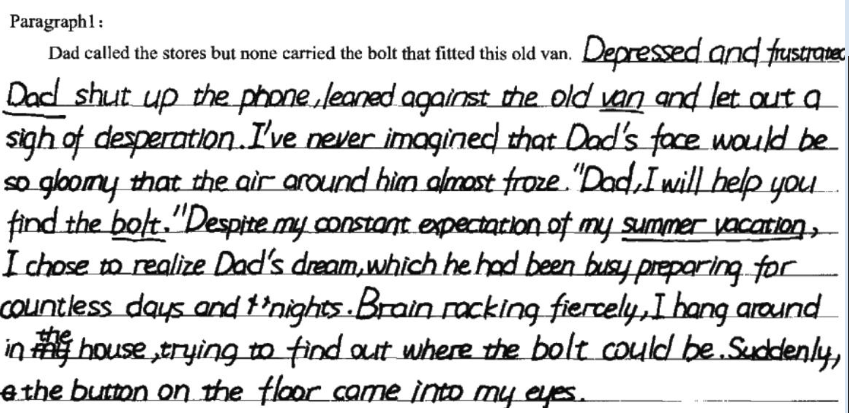 Paragraph1:
Dad called the stores but none carried the bolt that fitted this old van. Depressed and frustrated
Dad shut up the phone, leaned against the old van and let out a
sigh of desperation. I've never imagined that Dad's face would be
so gloomy that the air around him almost froze. "Dad, I will help you
find the bolt." Despite my constant expectation of my summer vacation,
I chose to realize Dad's dream, which he had been busy preparing for
countless days and nights. Brain racking fiercely, I hang around
in the house, trying to find out where the bolt could be. Suddenly,
the button on the floor came into my eyes.